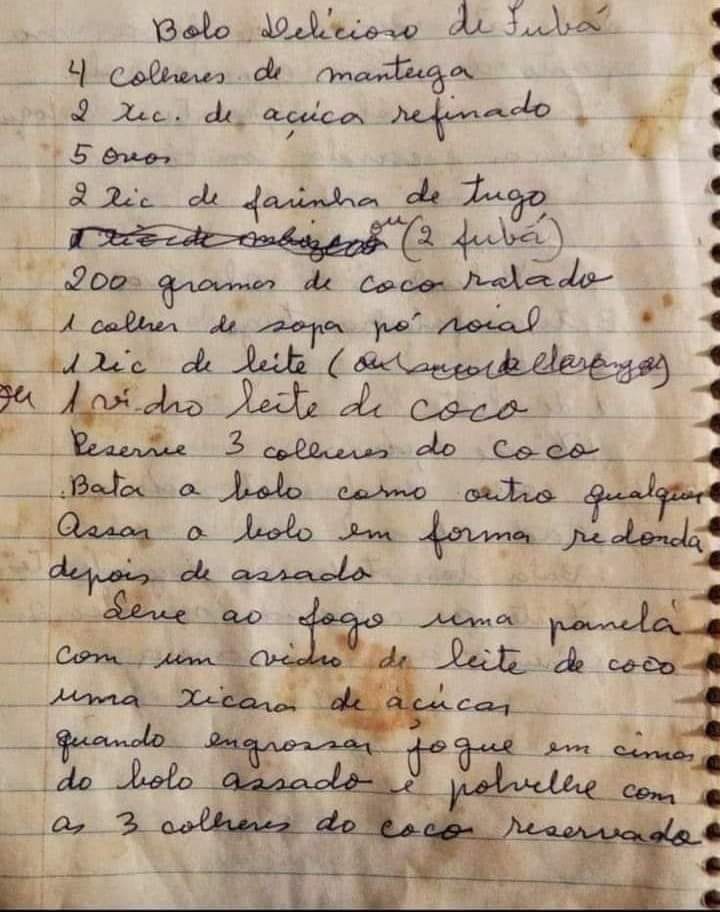 Bolo Delicioso de Fubá
4 colheres de manteiga
2 xic. de açúca refinado
5 ovos
2 xic de farinha de trigo
ou (2 fubá)
200 gramas de coco ralado
1 colher de sopa pó roial
1 xic de leite (ou suco de laranja)
ou 1 vidro leite de coco
Reserve 3 colheres do coco
Bata o bolo como outro qualquer
Assar o bolo em forma redonda
depois de assado
Leve ao fogo uma panela
com um vidro de leite de coco
uma xicara de açúcar
quando engrossar jogue em cima
do bolo assado e polvilhe com
as 3 colheres do coco reservado